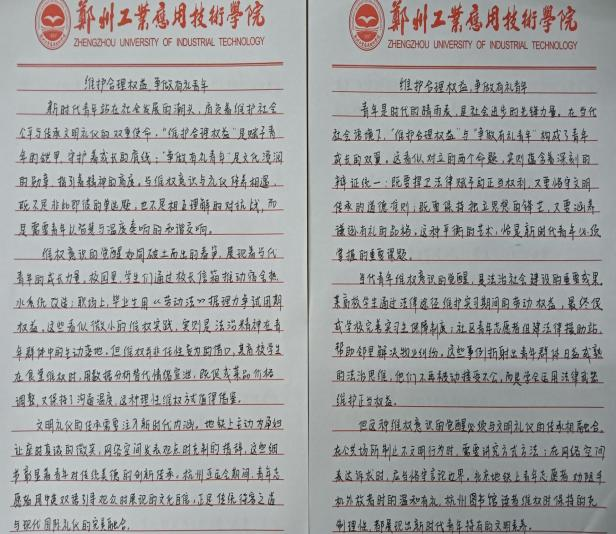 郑州工業應用技術學院
ZHENGZHOU UNIVERSITY OF INDUSTRIAL TECHNOLOGY
维护合理权益,争做有礼青年
新时代青年站在社会发展的潮头,肩负着维护社会
公平与传承文明礼仪的双重使命。“维护合理权益”是赋予青
年的铠甲,守护着成长的底线;“争做有礼青年”是文化浸润
的勋章,指引着精神的高度。当维权意识与礼仪修养相遇,
既不是非此即彼的单选题,也不是相互理解的对抗战,而
是需要青年以智慧与温度奏响的和谐交响。
维权意识的觉醒如同破土而出的春笋,展现着当代
青年的成长力量。校园里,学生们通过校长信箱推动宿舍热
水系统改造;职场上,毕业生用《劳动法》据理力争试用期
权益。这些看似微小的维权实践,实则是法治精神在青
年群体中的生动落地。但维权并非任性妄为的借口,某高校学生
在食堂维权时,用数据分析替代情绪宣泄,既促成菜品价格
调整,又保持了沟通温度,这种理性维权方式值得借鉴。
文明礼仪的传承需要注入新时代内涵。地铁上主动为孕妇
让座时真诚的微笑,网络空间发表观点时克制的措辞,这些细
节彰显着青年对传统美德的创新传承。杭州亚运会期间,青年志
愿者用中英双语引导观众时展现的文化自信,正是传统待客之道
与现代国际礼仪的完美融合。
郑州工業應用技術學院
ZHENGZHOU UNIVERSITY OF INDUSTRIAL TECHNOLOGY
维护合理权益,争做有礼青年
青年是时代的晴雨表,是社会进步的先锋力量。在当代
社会语境下,“维护合理权益”与“争做有礼青年”构成了青年
成长的双翼。这看似对立的两个命题,实则蕴含着深刻的
辩证统一:既要捍卫法律赋予的正当权利,又要恪守文明
传承的道德准则;既要保持独立思想的锋芒,又要涵养
谦逊有礼的品格。这种平衡的艺术,恰是新时代青年必须
掌握的重要课题。
当代青年维权意识的觉醒,是法治社会建设的重要成果。
某高校学生通过法律途径维护实习期间的劳动权益,最终促
成学校完善实习生保障制度;社区青年志愿者组建法律援助站,
帮助邻里解决物业纠纷。这些事例折射出青年群体日益成熟
的法治思维,他们不再被动接受不公,而是学会运用法律武器
维护正当权益。
但这种维权意识的觉醒必须与文明礼仪的传承相融合。
在公共场所制止不文明行为时,需要讲究方式方法;在网络空间
表达诉求时,应当恪守言论边界。北京地铁上青年志愿者劝阻手
机外放者时的温和有礼,杭州图书馆读者维权时保持的克
制理性,都展现出新时代青年特有的文明素养。